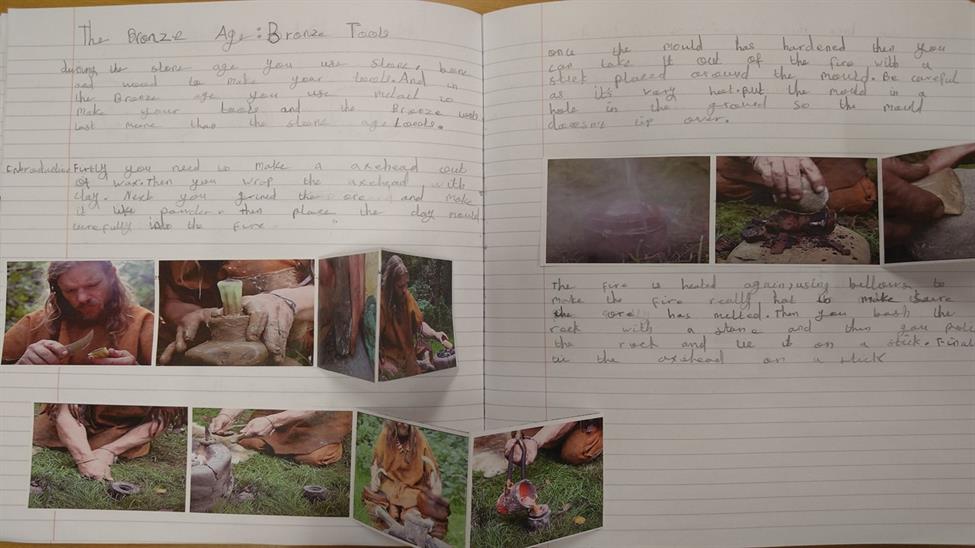 The Bronze Age: Bronze Tools
during the stone age you use stone, bone
and wood to make your tools. And in
the Bronze age you use metal to
make your tools and the Bronze tools
last more than the stone age tools.
Introduction Firtly you need to make a axehead out
of wax. Then you wrap the axehead with
clay. Next you grined the ore and make
it like powder. then place the clay mould
carefully into the fire.
once the mould has hardened then you
can take it out of the fire with a
stick placed around the mould. Be careful
as it's very hot. put the mould in a
hole in the ground so the mould
doesn't tip over.
The fire is heated again, using bellows, to
make the fire really hot to make sure
the ore has melted. Then you bash the
rock with a stone and then you
the rock and tie it on a stick. Final
tie the axehead on a stick